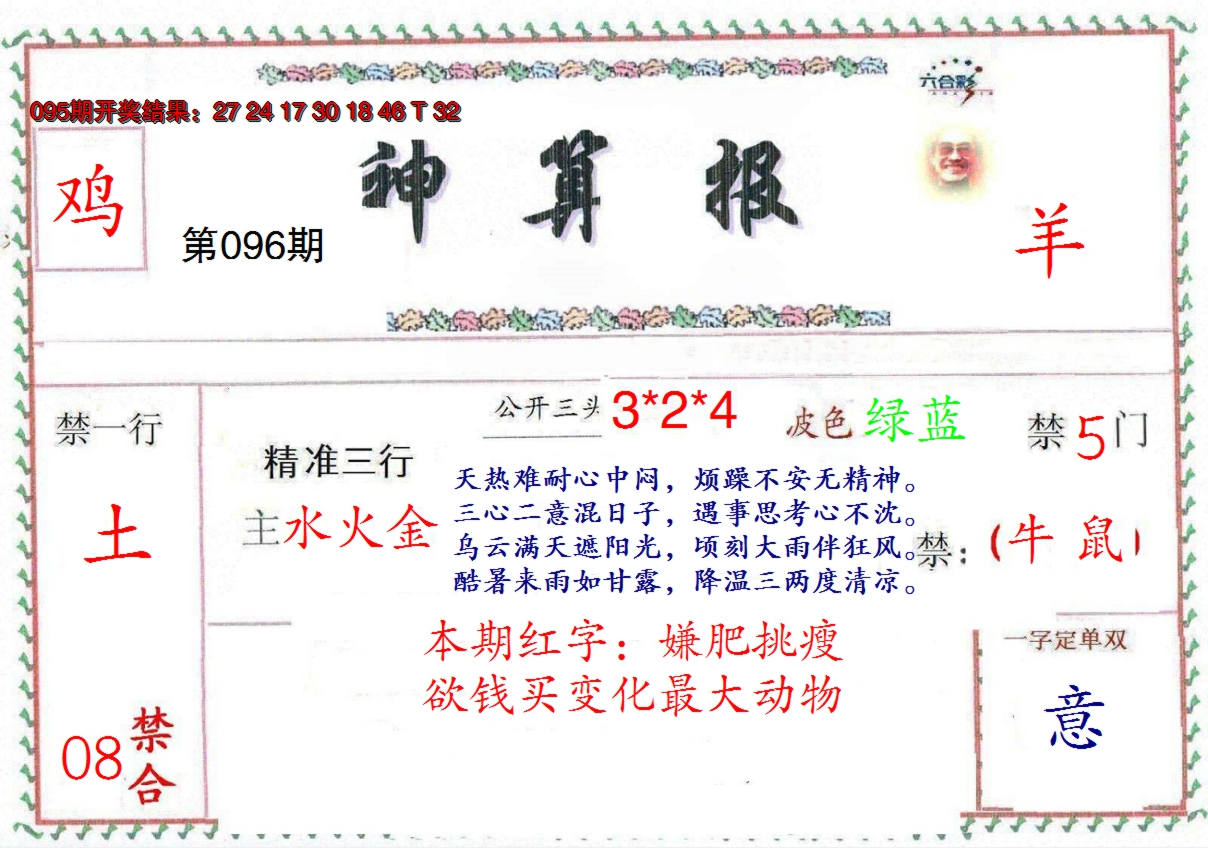 六合彩
095期开奖结果：27 24 17 30 18 46 T 32
鸡
神算报
第096期
羊
禁一行
土
08
禁合
精准三行
主水火金
公开三头
3*2*4
波色 绿蓝
禁5门
天热难耐心中闷，烦躁不安无精神。
三心二意混日子，遇事思考心不沈。
乌云满天遮阳光，顷刻大雨伴狂风。
酷暑来雨如甘露，降温三两度清凉。
禁：(牛 鼠)
本期红字：嫌肥挑瘦
欲钱买变化最大动物
一字定单双
意